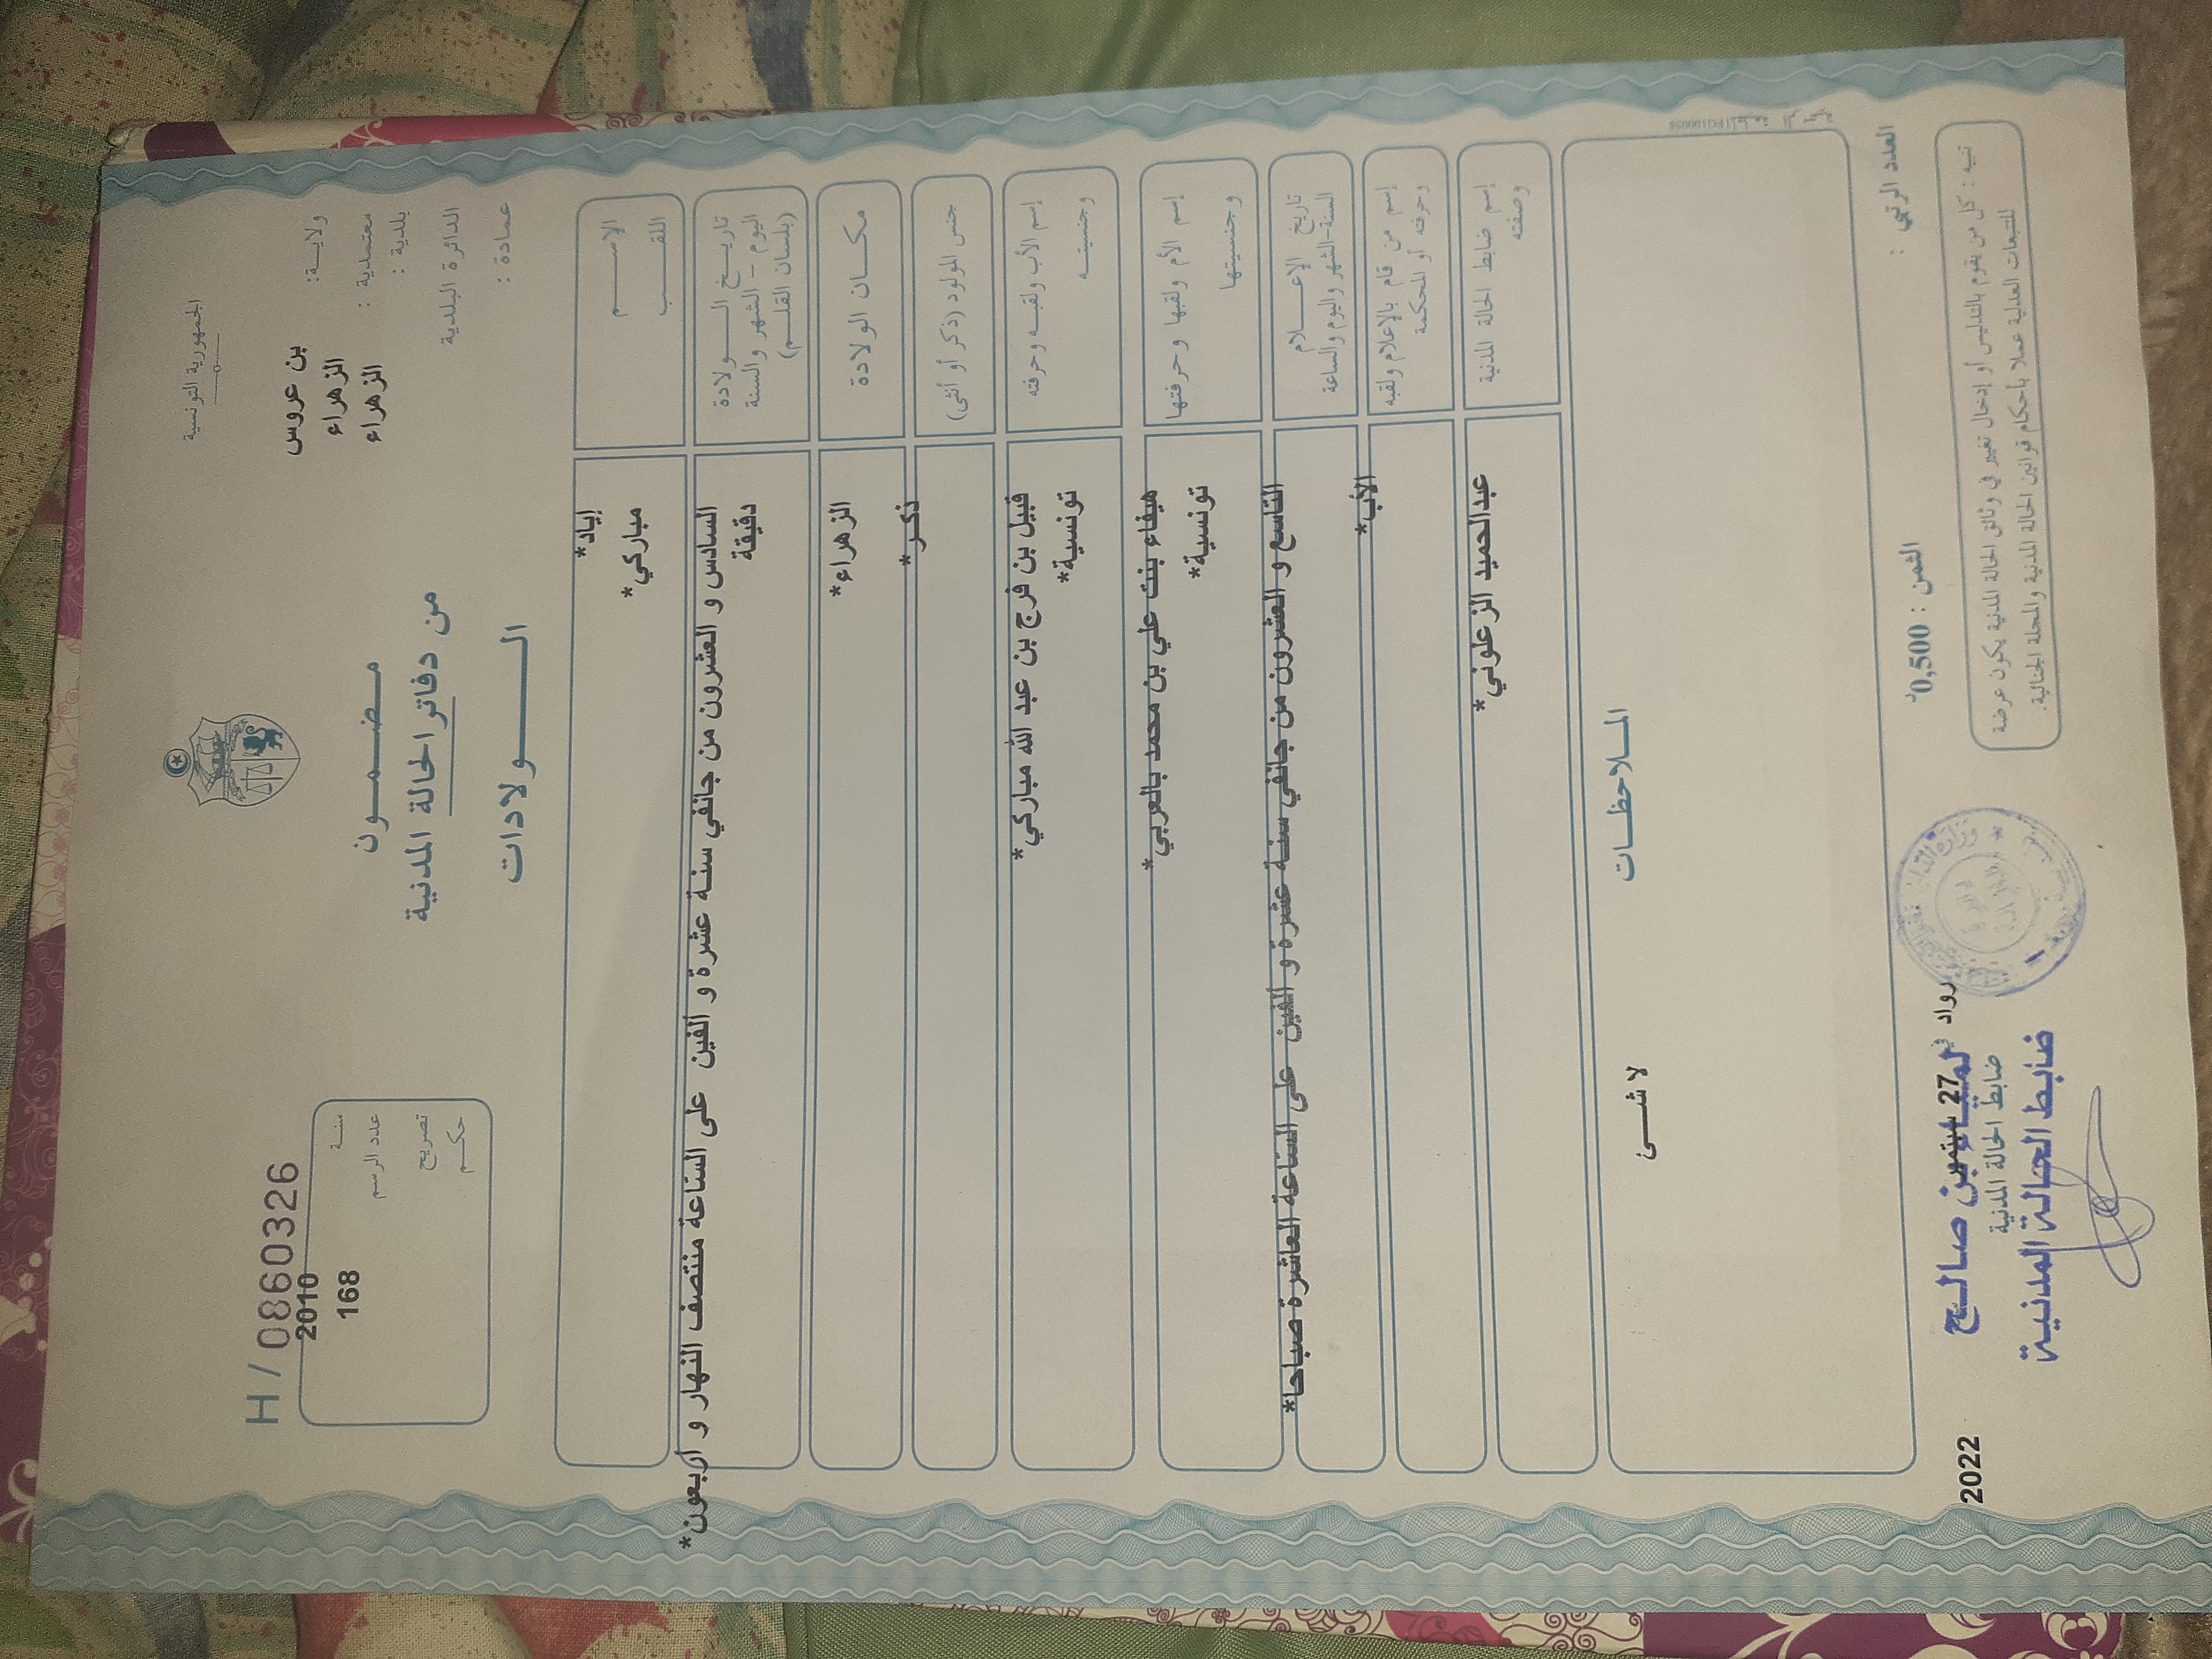 الجمهورية التونسية
ولاية: بن عروس
معتمدية : الزهراء
بلدية : الزهراء
الدائرة البلدية
عمادة :
H / 0860326
سنة 2010
عدد الرسم 168
تصريح
حكم
مضمون
من دفاتر الحالة المدنية
الولادات
الإسم إياد*
اللقب مباركي*
تاريخ الولادة السادس و العشرون من جانفي سنة عشرة و ألفين على الساعة منتصف النهار و أربعون*
اليوم - الشهر والسنة دقيقة
(بلسان القلم)
مكان الولادة الزهراء*
جنس المولود (ذكر أو أنثى) ذكر*
إسم الأب ولقبه وحرفته قبيل بن فرج بن عبد الله مباركي*
وجنسيته تونسية*
إسم الأم ولقبها وحرفتها هيفاء بنت علي بن محمد بالعربي*
وجنسيتها تونسية*
تاريخ الإعلام التاسع و العشرون من جانفي سنة عشرة و ألفين على الساعة العاشرة صباحا*
السنة-الشهر واليوم والساعة
إسم من قام بالإعلام ولقبه الأب*
وحرفته أو المحكمة
إسم ضابط الحالة المدنية عبدالحميد الزعلوني*
وصفته
الملاحظات
لا شئ
العدد الرتبي :
الثمن : 0,500د
رواد في 27 سبتمبر 2022
ضابط الحالة المدنية
لمياء بن صالح
ضابط الحالة المدنية
تنبيه : كل من يقوم بالتدليس أو إدخال تغيير في وثائق الحالة المدنية يكون عرضة
للتتبعات العدلية عملا بأحكام قوانين الحالة المدنية والمجلة الجنائية.